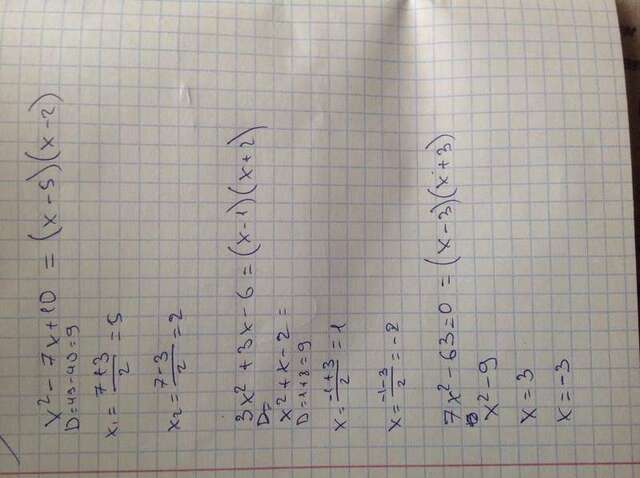 x² - 7x + 10 = (x - 5)(x - 2)
D = 49 - 40 = 9
x₁ = (7+3)/2 = 5
x₂ = (7-3)/2 = 2
3x² + 3x - 6 = (x - 1)(x + 2)
D =
x² + x - 2 =
D = 1 + 8 = 9
x = (-1+3)/2 = 1
x = (-1-3)/2 = -2
7x² - 63 = 0 = (x - 3)(x + 3)
x² - 9
x = 3
x = -3